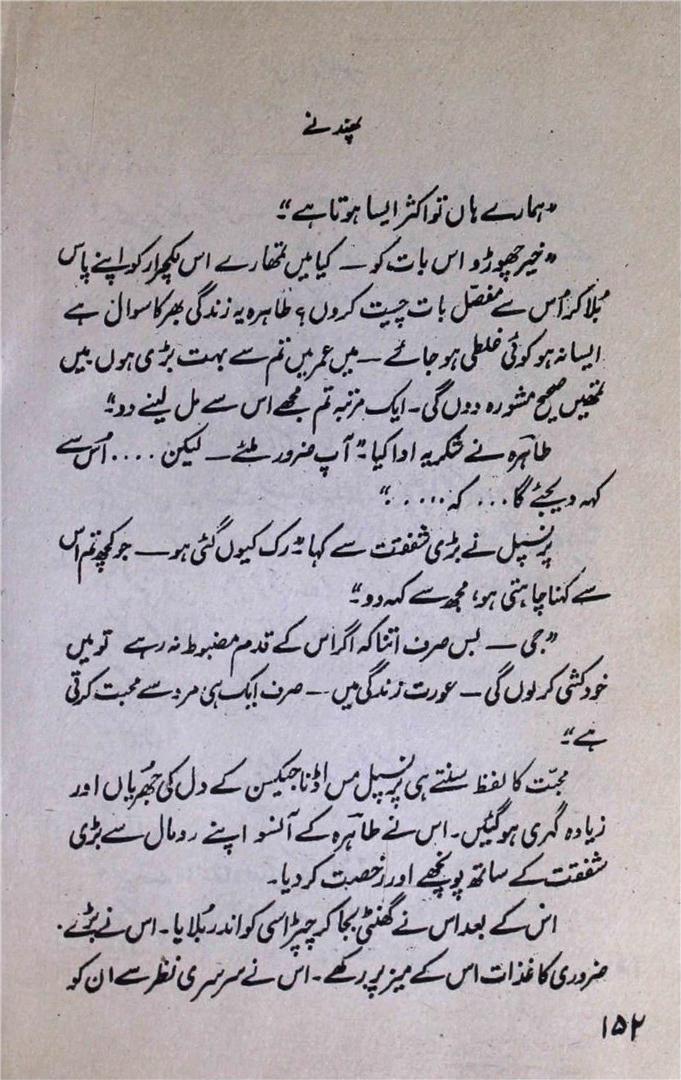 پھندنے
"ہمارے ہاں تو اکثر ایسا ہوتا ہے"۔
"خیر چھوڑو اس بات کو — کیا میں تمھارے اس لیکچرار کو اپنے پاس
بُلا کر اُس سے مفصّل بات چیت کروں؟ طاہرہ یہ زندگی بھر کا سوال ہے
ایسا نہ ہو کوئی غلطی ہو جائے — میں عمر میں تم سے بہت بڑی ہوں میں
تمھیں صحیح مشورہ دوں گی۔ ایک مرتبہ تم مجھے اس سے مل لینے دو"۔
طاہرہ نے شکریہ ادا کیا۔ "آپ ضرور ملئے — لیکن .... اُس سے
کہہ دیجئے گا ... کہ ....."
پرنسپل نے بڑی شفقت سے کہا۔ "رک کیوں گئی ہو — جو کچھ تم اس
سے کہنا چاہتی ہو، مجھ سے کہہ دو"۔
"جی — بس صرف اتنا کہ اگر اس کے قدم مضبوط نہ رہے تو میں
خودکشی کر لوں گی — عورت زندگی میں — صرف ایک ہی مرد سے محبت کرتی
ہے"۔
محبّت کا لفظ سنتے ہی پرنسپل مس اڈنا جیکسن کے دل کی جھُریاں اور
زیادہ گہری ہوگئیں۔ اس نے طاہرہ کے آنسو اپنے رومال سے بڑی
شفقت کے ساتھ پونچھے اور رخصت کر دیا۔
اس کے بعد اس نے گھنٹی بجا کر چپڑاسی کو اندر بُلایا۔ اس نے بڑے
ضروری کاغذات اس کے میز پر رکھے۔ اس نے سرسری نظر سے ان کو
۱۵۲